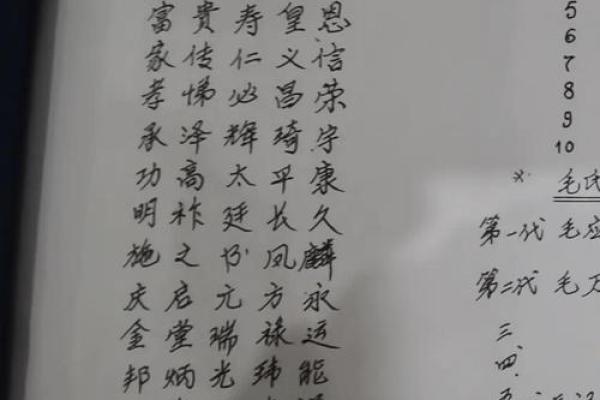 富贵寿皇恩
家传仁义信
孝悌必昌荣
承泽辉琦宇
功高太平康
明祚廷长久
施之书凤麟
庆启元方永
金堂瑞禄运
邦炳光玮能
5
6
7
8
9
10
※ 毛氏
第一代 毛应
第二代 毛万
三
四